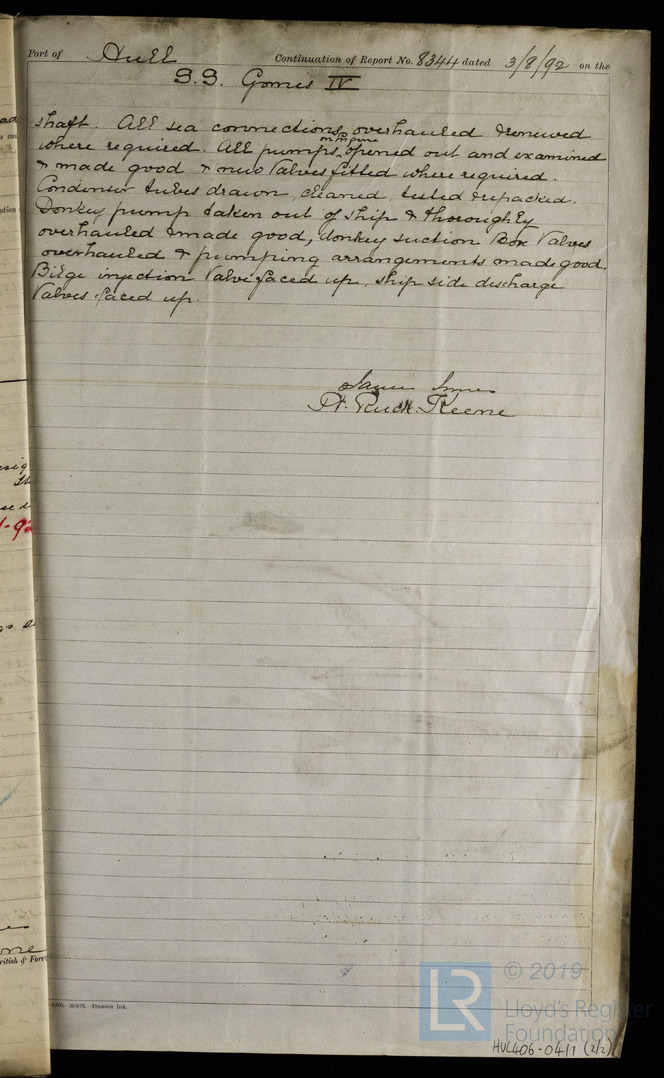 Port of Hull Continuation of Report No. 8344 dated 3/8/92 on the
S.S. Gomes IV
shaft. All sea connections overhauled & renewed
where required. All pumps, on engine opened out and examined
& made good & new Valves fitted where required.
Condenser tubes drawn, cleaned, tested & repacked.
Donkey pump taken out of ship & thoroughly
overhauled & made good, donkey suction Box Valves
overhauled & pumping arrangements made good.
Bilge injection Valve faced up, ship side discharge
Valves faced up.
H. Ruck. Keene
Transfer Ink.
LR © 2019
Lloyd's Register
Foundation
HUL406-0411 (2/2)